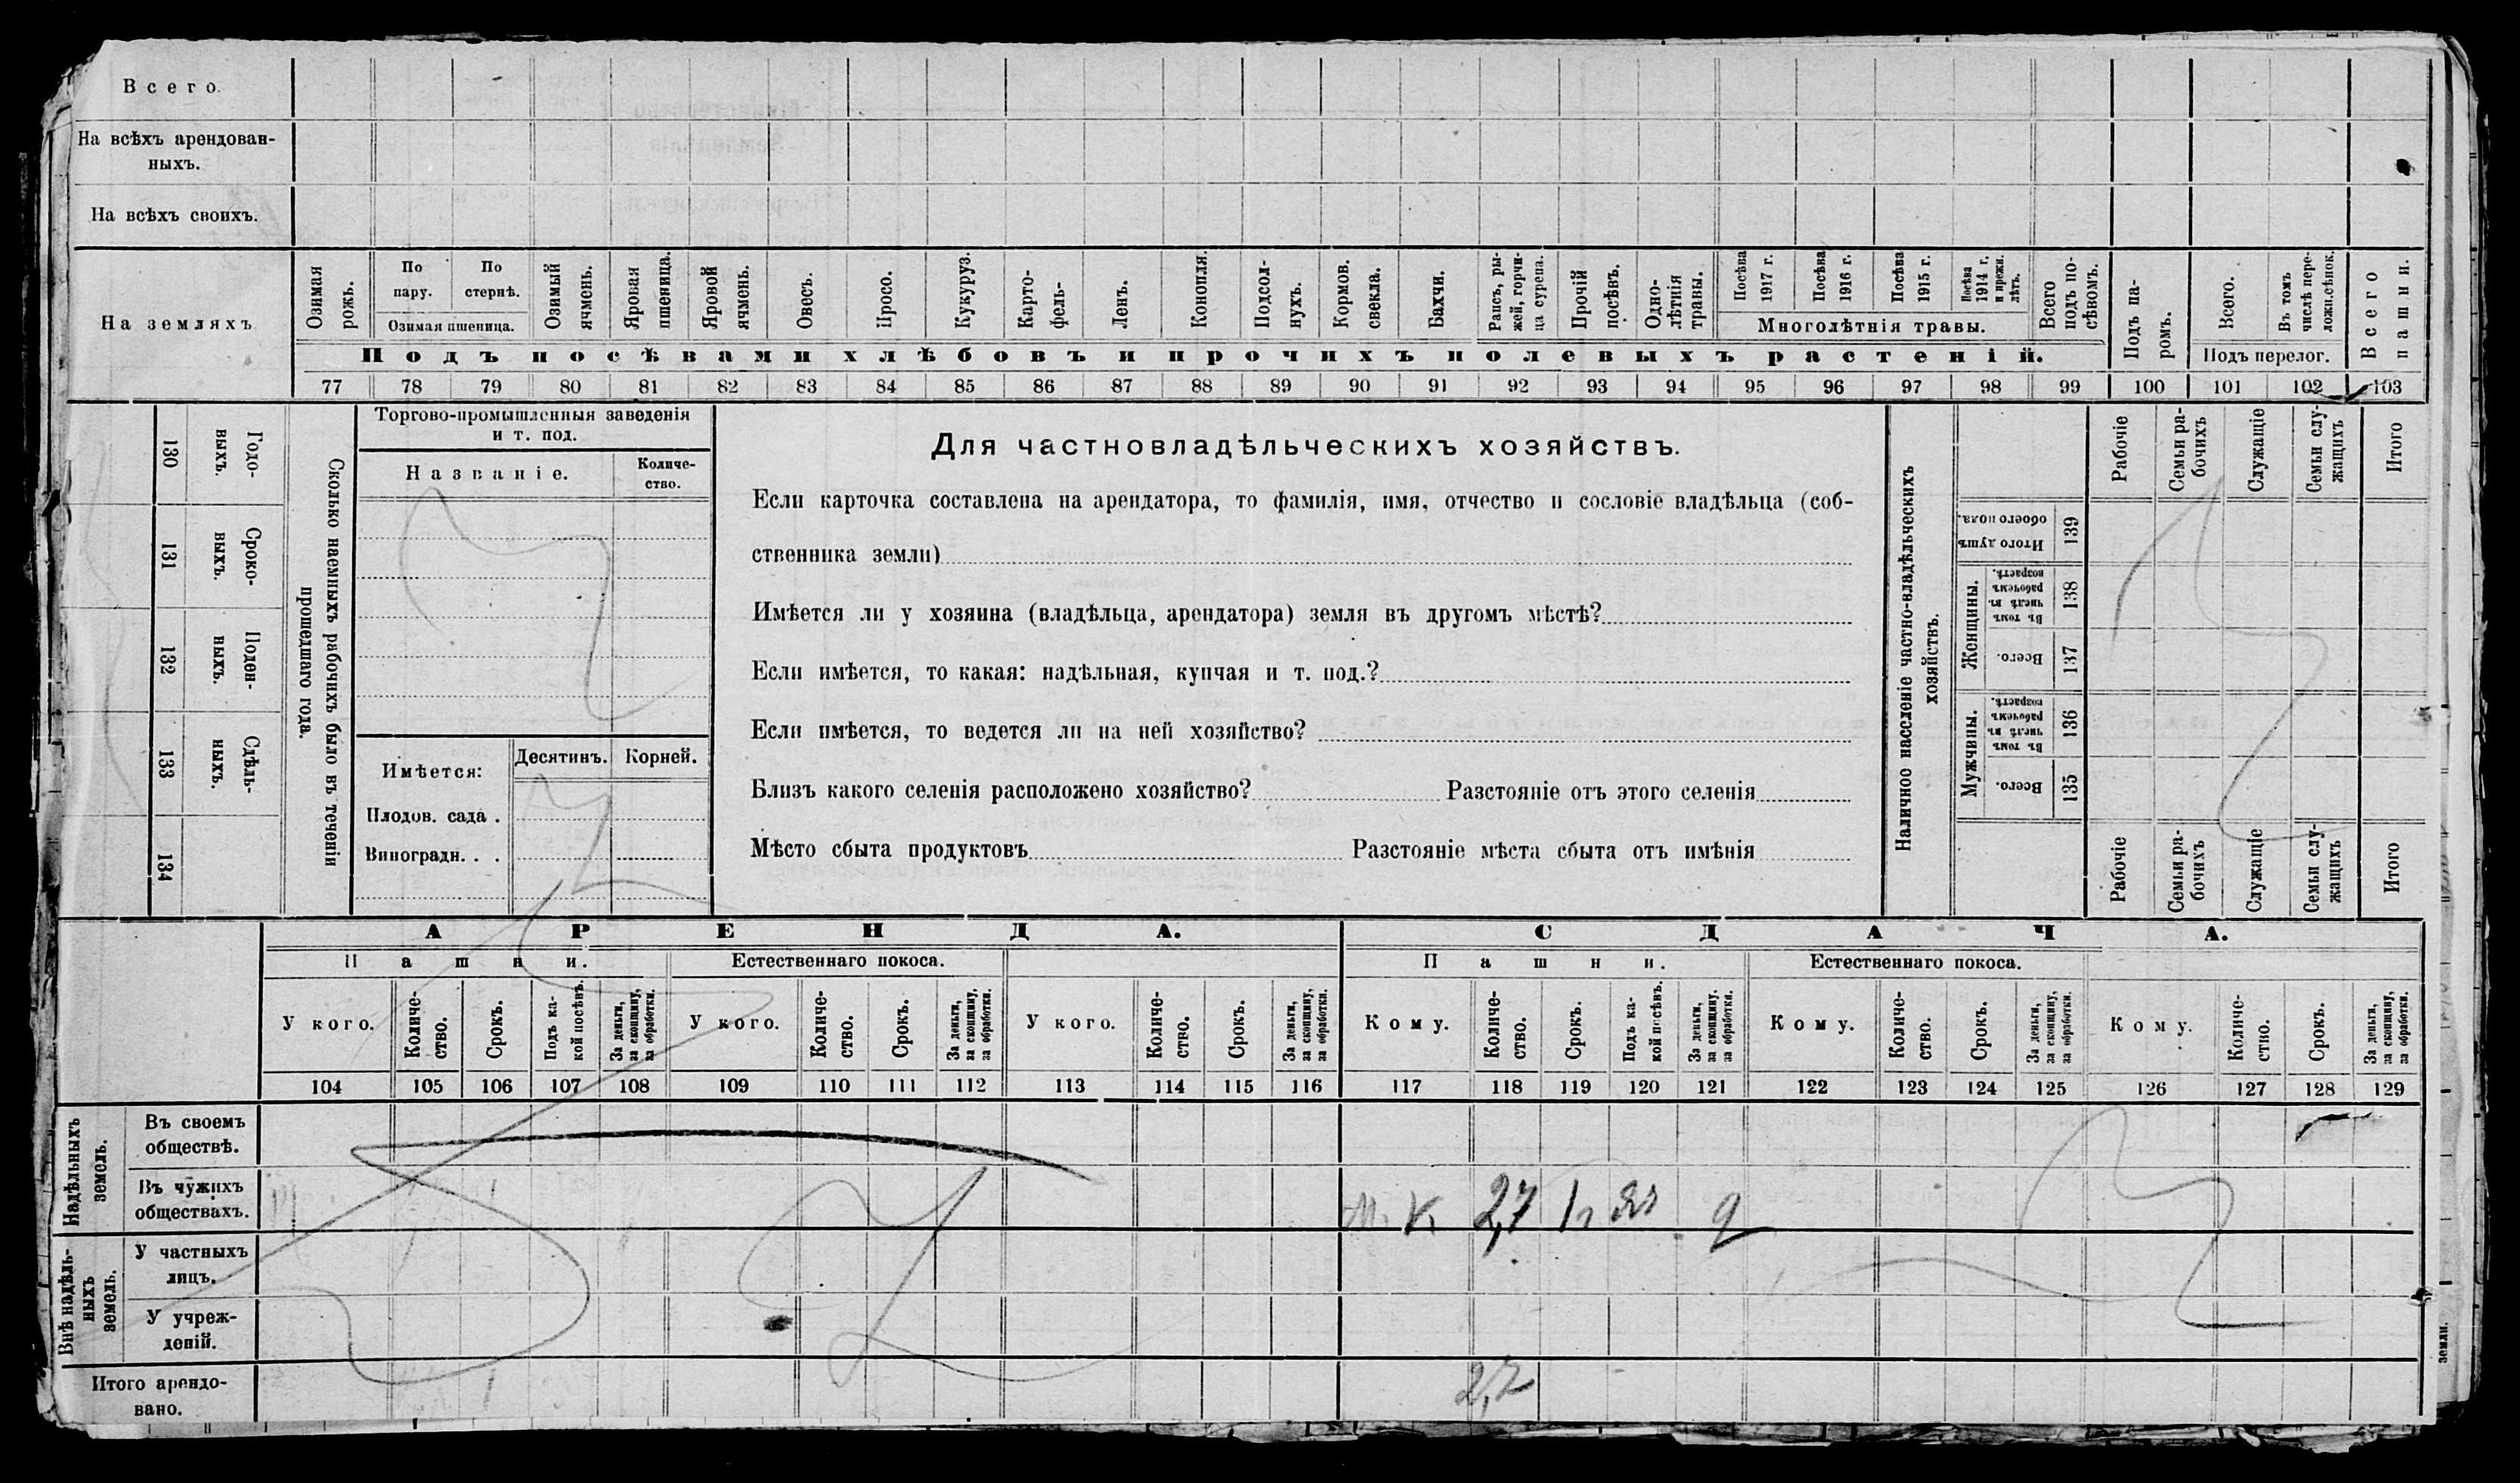 Всего.
На всѣхъ арендован-
ныхъ.
На всѣхъ своихъ.
На земляхъ
Озимая рожь.
По пару.
По стернѣ.
Озимая пшеница.
Озимый ячмень.
Яровая пшеница.
Яровой ячмень.
Овесъ.
Просо.
Кукуруз.
Карто-
фель.
Ленъ.
Конопля.
Подсол-
нухъ.
Кормов. свекла.
Бахчи.
Рапсъ, ры-
жей, горчи-
ца сурепа.
Прочій посѣвъ.
Одно-
лѣтнія травы.
Посѣва 1917 г.
Посѣва 1916 г.
Посѣва 1915 г.
Посѣва 1914 г. и прежн. лѣтъ.
Многолѣтнія травы.
Всего подъ по-
сѣвомъ.
Подъ па-
ромъ.
Всего.
Въ томъ числѣ пере-
ложн. сѣнок.
Подъ перелог.
Всего пашни.
Подъ посѣвами хлѣбовъ и прочихъ полевыхъ растеній.
77 78 79 80 81 82 83 84 85 86 87 88 89 90 91 92 93 94 95 96 97 98 99 100 101 102 103
130 Годо-
выхъ.
131 Сроко-
выхъ.
132 Поден-
ныхъ.
133 Сдѣль-
ныхъ.
134
Сколько наемныхъ рабочихъ было въ теченіи
прошедшаго года.
Торгово-промышленныя заведенія
и т. под.
Названіе.
Количе-
ство.
Имѣется:
Десятинъ.
Корней.
Плодов. сада .
Виноградн. . .
Для частновладѣльческихъ хозяйствъ.
Если карточка составлена на арендатора, то фамилія, имя, отчество и сословіе владѣльца (соб-
ственника земли)
Имѣется ли у хозяина (владѣльца, арендатора) земля въ другомъ мѣстѣ?
Если имѣется, то какая: надѣльная, купчая и т. под.?
Если имѣется, то ведется ли на ней хозяйство?
Близъ какого селенія расположено хозяйство? Разстояніе отъ этого селенія
Мѣсто сбыта продуктовъ Разстояніе мѣста сбыта отъ имѣнія
Наличное населеніе частно-владѣльческихъ
хозяйствъ.
Рабочіе
Семьи ра-
бочихъ
Служащіе
Семьи слу-
жащихъ
Итого
Итого душъ обоего пола.
139
Женщины.
Въ томъ числѣ въ рабочемъ возрастѣ.
138
Всего.
137
Мужчины.
Въ томъ числѣ въ рабочемъ возрастѣ.
136
Всего.
135
Рабочіе
Семьи ра-
бочихъ
Служащіе
Семьи слу-
жащихъ
Итого
АРЕНДА.
СДАЧА.
Пашни.
Естественнаго покоса.
Пашни.
Естественнаго покоса.
У кого.
Количе-
ство.
Срокъ.
Подъ ка-
кой посѣвъ.
За деньги, за скопщину, за обработки.
У кого.
Количе-
ство.
Срокъ.
За деньги, за скопщину, за обработки.
У кого.
Количе-
ство.
Срокъ.
За деньги, за скопщину, за обработки.
Кому.
Количе-
ство.
Срокъ.
Подъ ка-
кой посѣвъ.
За деньги, за скопщину. за обработки.
Кому.
Количе-
ство.
Срокъ.
За деньги, за скопщину, за обработки.
Кому.
Количе-
ство.
Срокъ.
За деньги, за скопщину, за обработки.
104 105 106 107 108 109 110 111 112 113 114 115 116 117 118 119 120 121 122 123 124 125 126 127 128 129
Надѣльныхъ земель.
Въ своемъ
обществѣ.
Въ чужихъ
обществахъ.
К. 2,7
Внѣ надѣль-
ныхъ земель.
У частныхъ
лицъ.
У учреж-
деній.
Итого арендо-
вано.
2,7
земли.